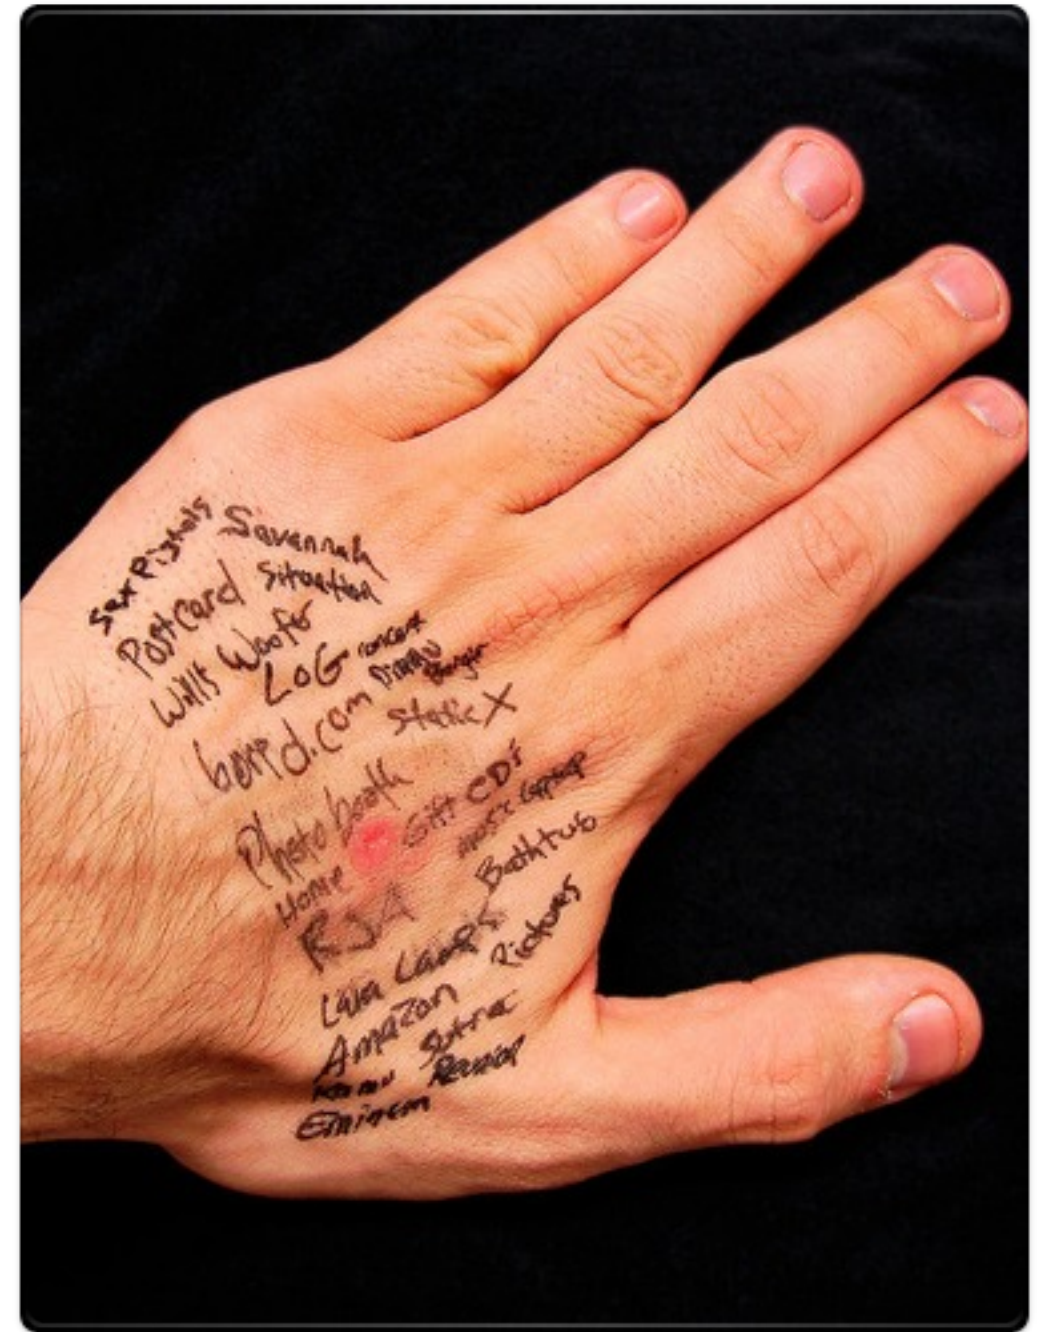 Sex Pistols Savannah
Postcard Situation
Wills Woofer
LOG concert
bored.com
Static X
Photobooth
Home GH CDs
music laptop
RJA Bathtub
Lava Lamps
Pictures
Amazon
Eminem